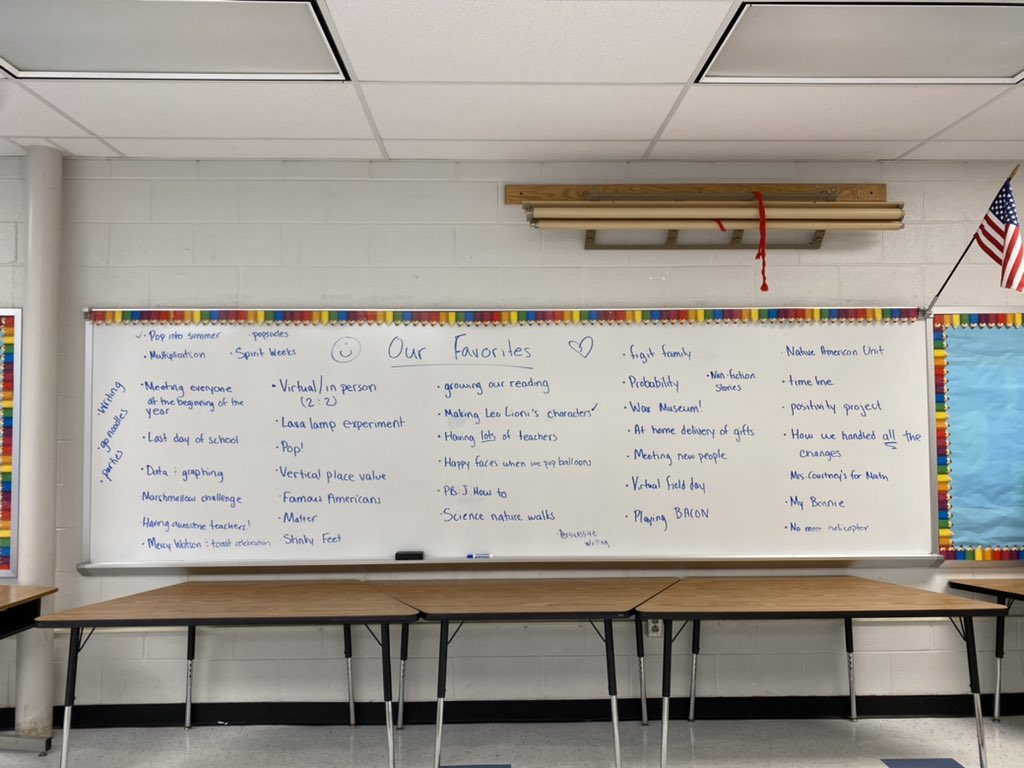 Our Favorites
Pop into summer
popsicles
Multiplication
Spirit Weeks
Writing
go noodles
parties
Meeting everyone
at the beginning of the
year
Last day of school
Data : graphing
Marshmellow challenge
Having awesome teachers!
Mercy Watson : toast celebration
Virtual/in person
(2:2)
Lava lamp experiment
Pop!
Vertical place value
Famous Americans
Matter
Stinky Feet
growing our reading
Making Leo Lioni's characters
Having lots of teachers
Happy faces when we pop balloons
PB:J How to
Science nature walks
Persuassive
Writing
figit family
Probability
Non-fiction
Stories
Wax Museum!
At home delivery of gifts
Meeting new people
Virtual Field day
Playing BACON
Native American Unit
time line
positivity project
How we handled all the
changes
Mrs. Courtney's for Math
My Bonnie
No more helicopter